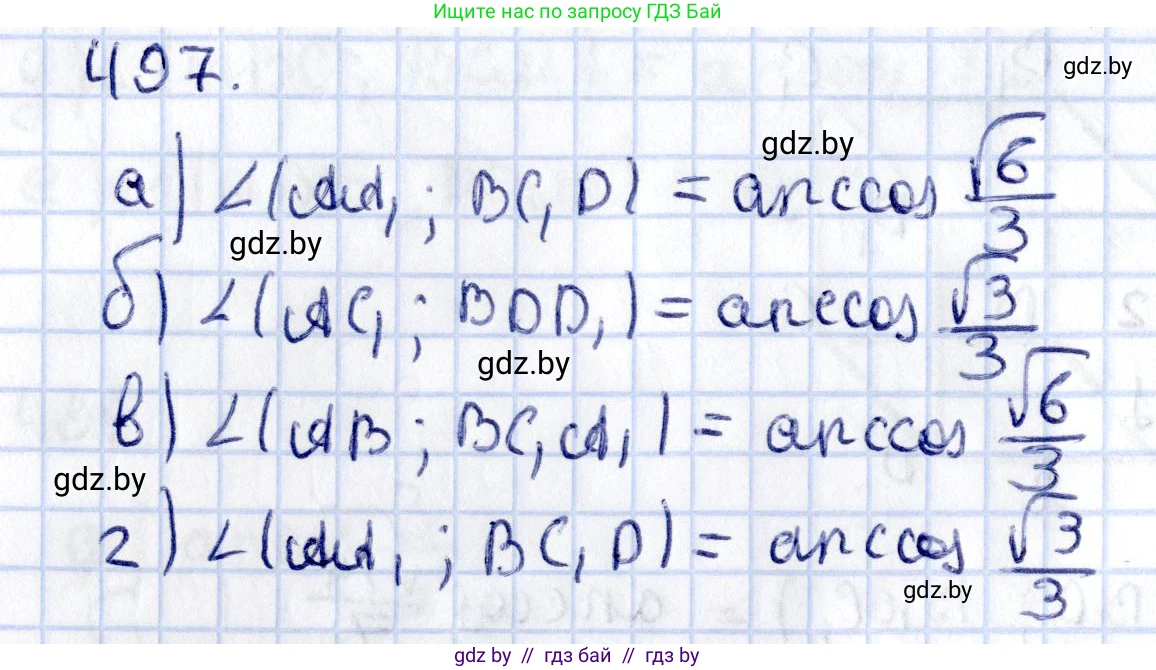 Ищите нас по запросу ГДЗ Бай
497.
gdz.by
gdz.by
а) ∠(AA₁; BC₁D) = arccos √6/3
gdz.by
б) ∠(AC₁; BDD₁) = arccos √3/3
gdz.by
в) ∠(AB; BC₁A₁) = arccos √6/3
gdz.by
г) ∠(AA₁; BC₁D) = arccos √3/3
gdz.by
gdz.by // гдз бай // гдз by